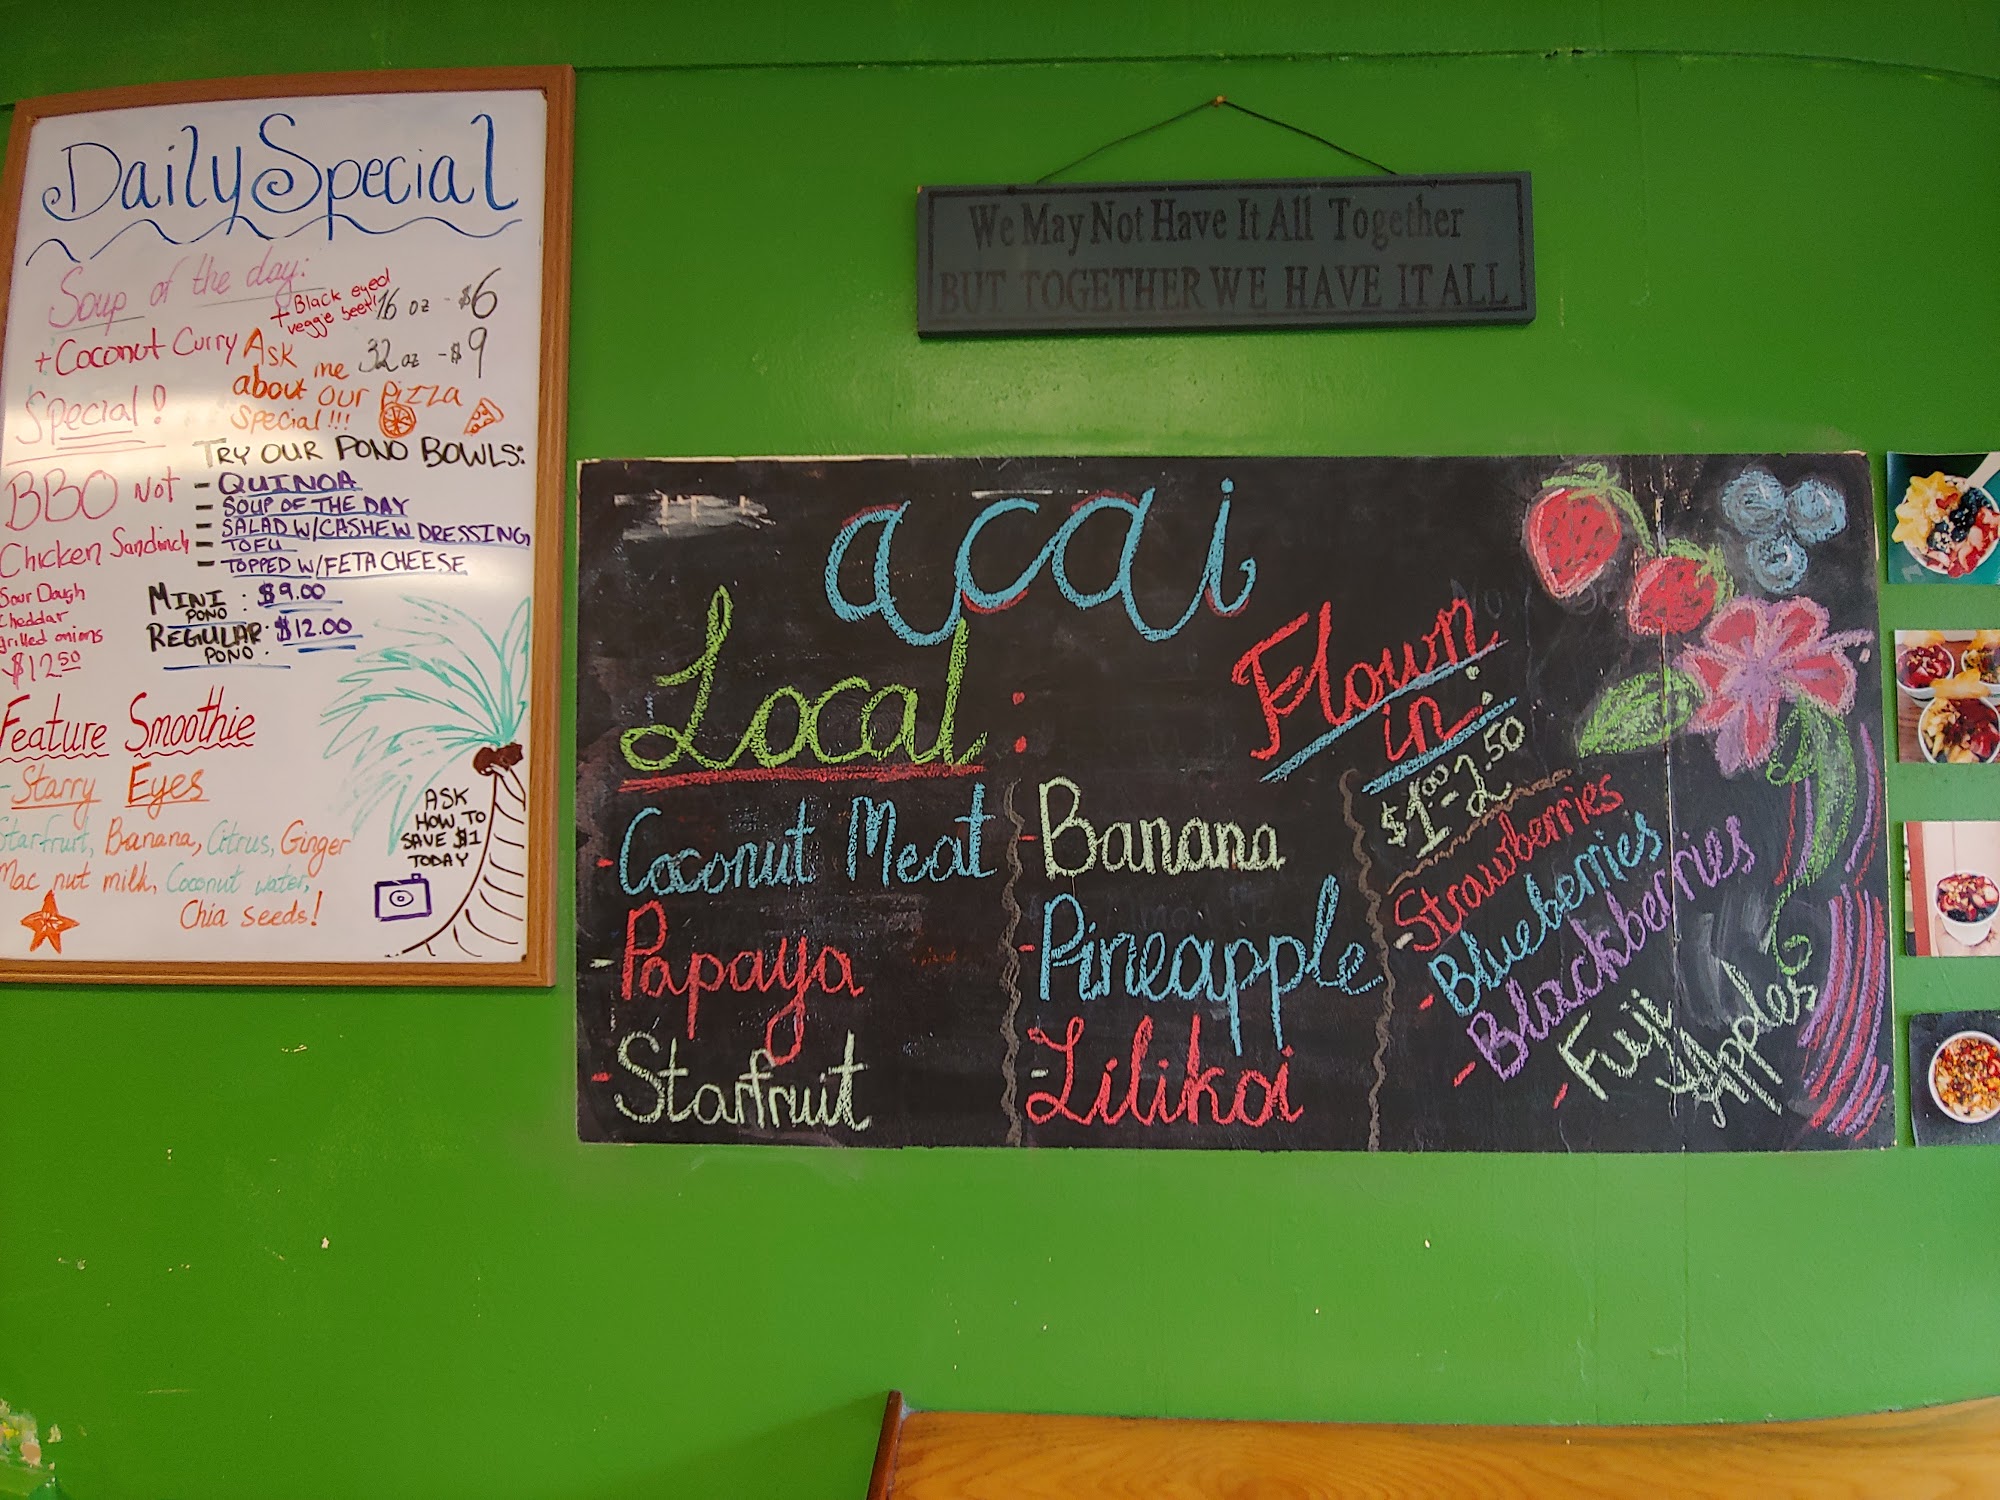 Daily Special
Soup of the day:
+ Black eyed
veggie beet!
16 oz - $6
+ Coconut Curry
32 oz - $9
Ask me
about our pizza
special!!!
Special!
BBQ Not
Chicken Sandwich
Sour Dough
cheddar
grilled onions
$12.50
TRY OUR PONO BOWLS:
- QUINOA
- SOUP OF THE DAY
- SALAD W/CASHEW DRESSING
- TOFU
- TOPPED W/FETA CHEESE
MINI PONO : $9.00
REGULAR PONO : $12.00
Feature Smoothie
- Starry Eyes
Starfruit, Banana, Citrus, Ginger
Mac nut milk, Coconut water,
Chia seeds!
ASK
HOW TO
SAVE $1
TODAY
We May Not Have It All Together
BUT TOGETHER WE HAVE IT ALL
acai
Local:
- Coconut Meat
- Papaya
- Starfruit
- Banana
- Pineapple
- Lilikoi
Flown
in:
$1.00-2.50
- Strawberries
- Blueberries
- Blackberries
- Fuji
Apples